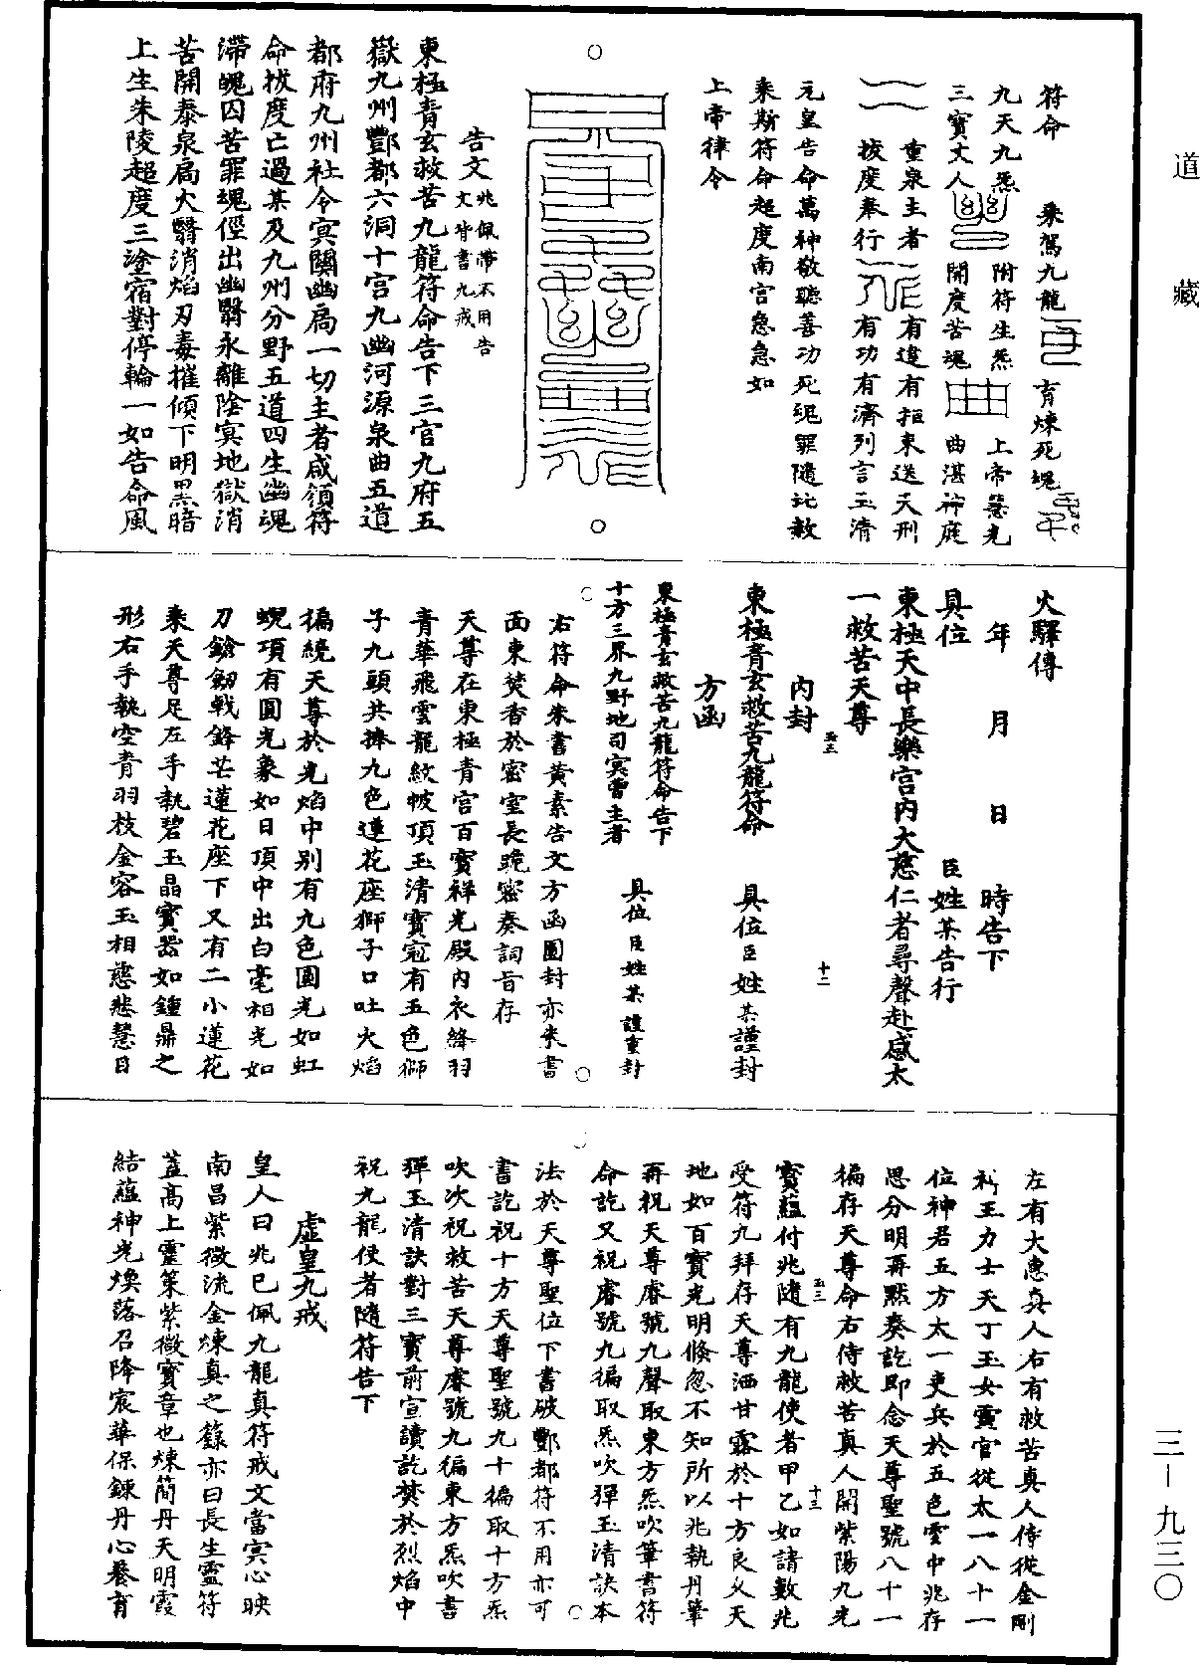 道藏
符命　乘駕九龍　育煉死魂
九天九炁　附符生炁　上帝慈光
三寶丈人　開度苦魂　曲湛神庭
重泉主者　有違有拒東送天刑
拔度奉行　有功有濟列言玉清
元皇告命萬神敬聽善功死魂罪隨比赦
乘斯符命超度南宫急急如
上帝律令
告文兆佩帶不用告文背書九戒
東極青玄救苦九龍符命告下三官九府五
嶽九州酆都六洞十宫九幽河源泉曲五道
都府九州社令冥關幽局一切主者咸領符
命拔度亡過某及九州分野五道四生幽魂
滯魄囚苦罪魂徑出幽翳永離陰冥地獄消
苦開泰泉扃火翳消焰刃毒摧傾下明黑暗
上生朱陵超度三塗宿對停輪一如告命風
火驛傳
年　月　日　時告下
具位　臣姓某告行
東極天中長樂宫内大慈仁者尋聲赴感太
一救苦天尊
内封
東極青玄救苦九龍符命　具位臣姓某謹封
方函
東極青玄救苦九龍符命告下
十方三界九野地司冥曹主者　具位臣姓某謹重封
右符命朱書黄素告文方函圓封亦朱書
面東焚香於密室長跪密奏詞旨存
天尊在東極青宫百寶祥光殿内衣絳羽
青華飛雲龍紋帔頂玉清寶冠有五色獅
子九頭共捧九色蓮花座獅子口吐火焰
徧繞天尊於光焰中别有九色圓光如虹
蜺項有圓光象如日頂中出白毫相光如
刀鎗劒戟鋒芒蓮花座下又有二小蓮花
乘天尊足左手執碧玉晶寶器如鍾鼎之
形右手執空青羽枝金容玉相慈悲慧目
左有大惠真人右有救苦真人侍從金剛
神王力士天丁玉女靈官從太一八十一
位神君五方太一吏兵於五色雲中兆存
思分明再黙奏訖即念天尊聖號八十一
徧存天尊命右侍救苦真人開紫陽九光
寶藴付兆隨有九龍使者甲乙如諸數兆
受符九拜存天尊洒甘露於十方良久天
地如百寶光明倐忽不知所以兆執丹筆
再祝天尊睿號九聲取東方炁吹筆書符
命訖又祝睿號九徧取炁吹彈玉清訣本
法於天尊聖位下書破酆都符不用亦可
書訖祝十方天尊聖號九十徧取十方炁
吹次祝救苦天尊睿號九徧東方炁吹書
彈玉清訣對三寶前宣讀訖焚於烈焰中
祝九龍使者隨符告下
虛皇九戒
皇人曰兆巳佩九龍真符戒文當冥心映
南昌紫微流金煉真之籙亦曰長生靈符
蓋高上靈策紫微寶章也煉簡丹天明霞
結藴神光煥落召降宸華保鍊丹心養育
三—九三〇